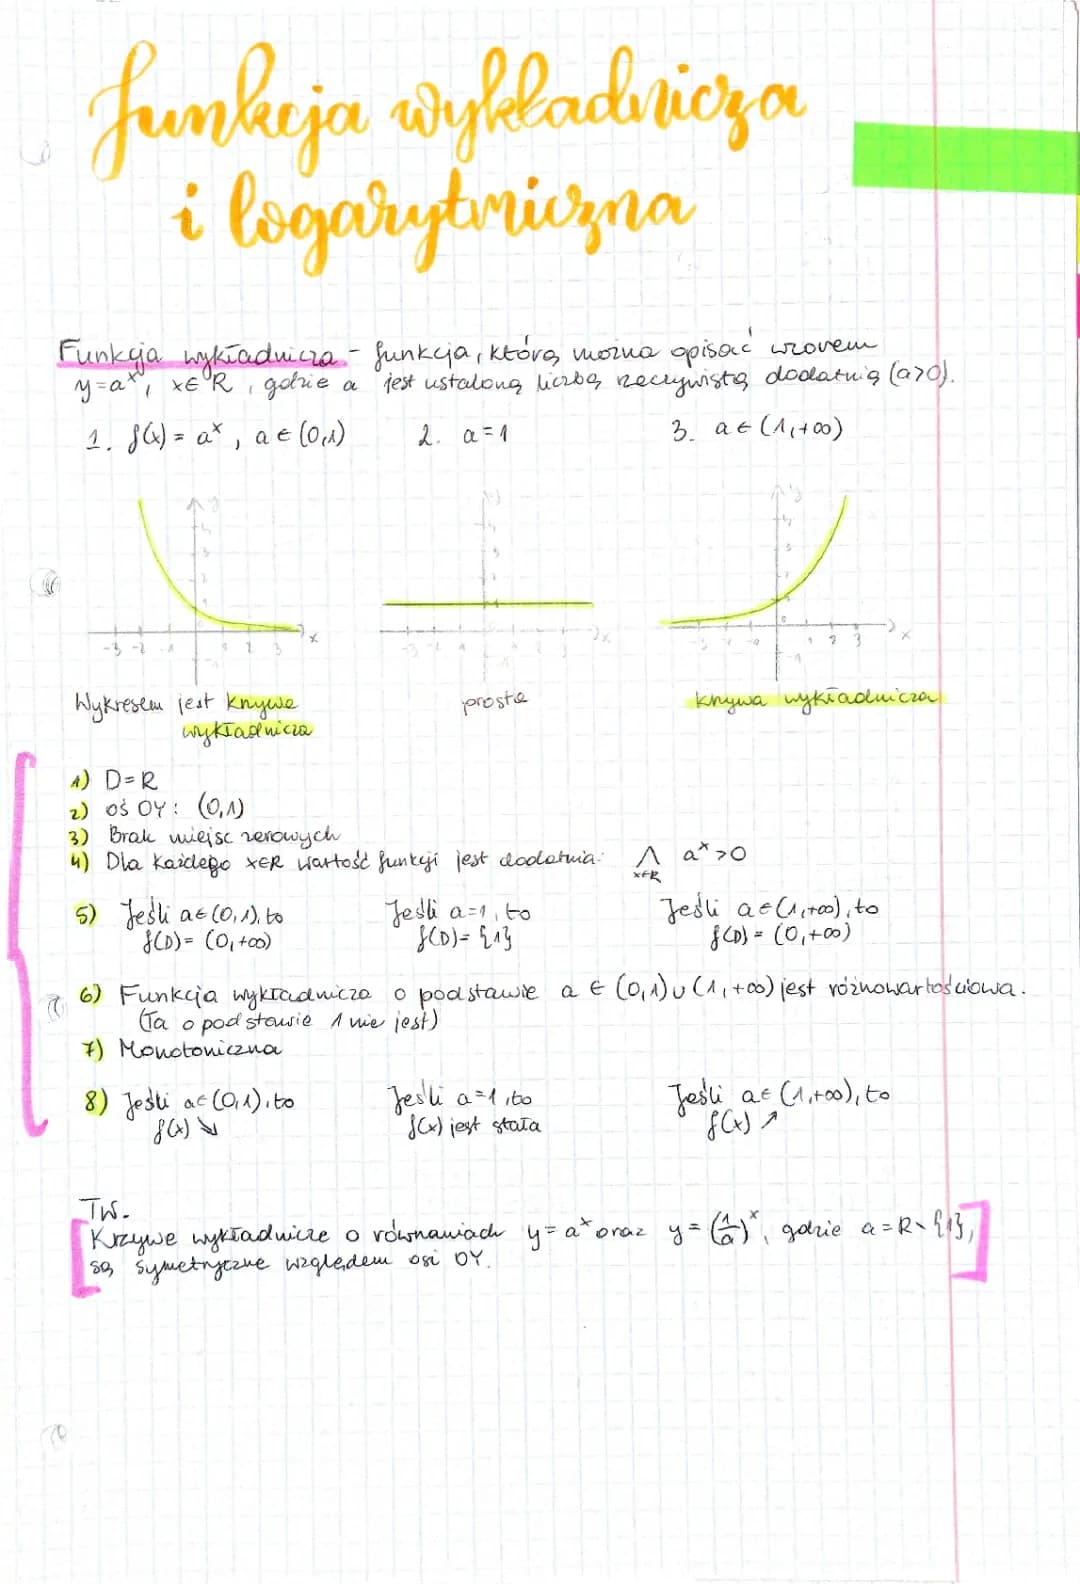 Funkcja wykładnicza
i logarytmiczna
Funkcja wykładnicza - funkcja, którą można opisać wzorem
y=aˣ, x∈R, gdzie a jest ustaloną liczbą rzeczywistą dodatnią (a>0).
1. f(x) = aˣ, a ∈ (0,1) 2. a=1 3. a ∈ (1,+∞)
Wykresem jest krzywa
wykładnicza
prosta
krzywa wykładnicza
1) D=R
2) oś OY: (0,1)
3) Brak miejsc zerowych
4) Dla każdego x∈R wartość funkcji jest dodatnia: ⋀ aˣ>0
x∈R
5) Jeśli a∈(0,1), to Jeśli a=1, to Jeśli a∈(1,+∞), to
f(D)= (0,+∞) f(D)= {1} f(D) = (0,+∞)
6) Funkcja wykładnicza o podstawie a ∈ (0,1)∪(1,+∞) jest różnowartościowa.
(Ta o podstawie 1 nie jest)
7) Monotoniczna
8) Jeśli a∈(0,1), to Jeśli a=1, to Jeśli a∈(1,+∞), to
f(x) ↘ f(x) jest stała f(x) ↗
TW.
Krzywe wykładnicze o równaniach y=aˣ oraz y=(1/a)ˣ, gdzie a=R\{1},
są symetryczne względem osi OY.